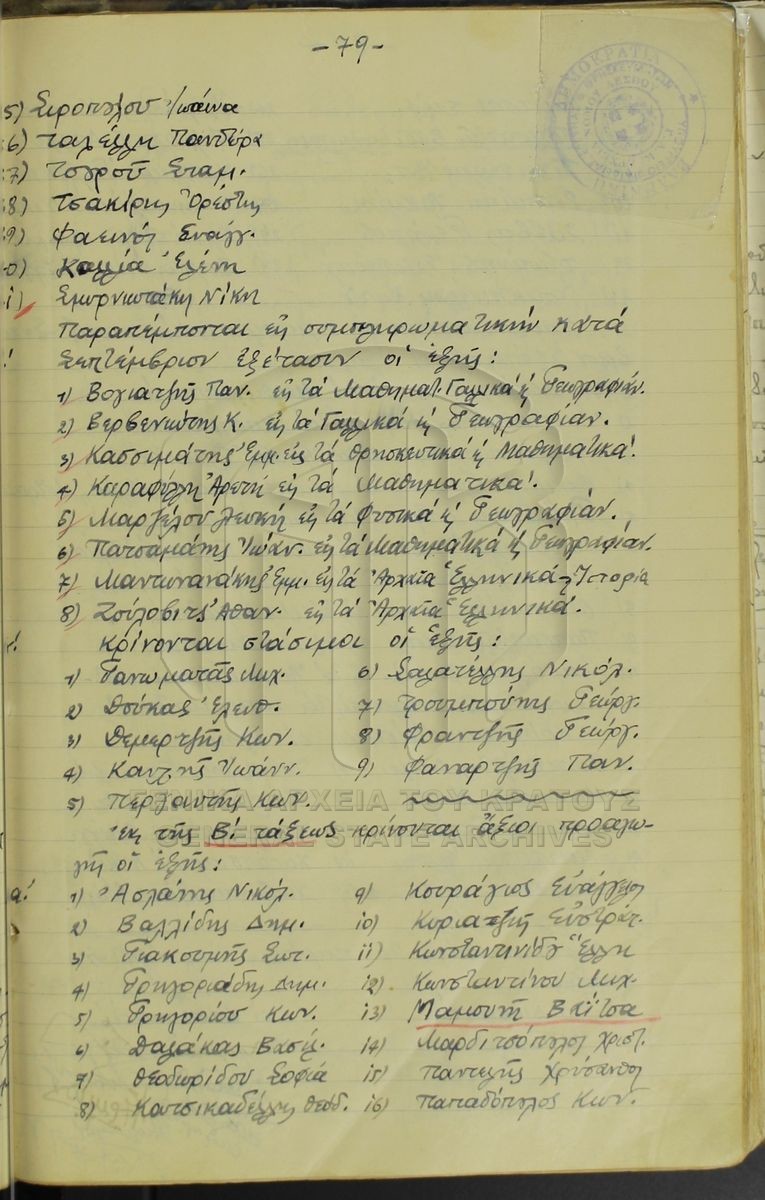 -79-
5) Σιροπούλου Ἰωάννα
6) Ταλέλλη Πανδώρα
7) Τσγροῦ Σταμ.
8) Τσακίρης Ὀρέστης
9) Φαεινός Εὐάγγ.
0) Καλλία Ἑλένη
ί) Σμυρνιωτάκη Νίκη
Παραπέμπονται εἰς συμπληρωματικήν κατά
Σεπτέμβριον ἐξέτασιν οἱ ἑξῆς:
1) Βογιατζῆς Παν. εἰς τά Μαθηματ. Γαλλικά ἠ Γεωγραφίαν.
2) Βερβενιώτης Κ. εἰς τά Γαλλικά ἠ Γεωγραφίαν.
3) Κασσιμάτης Ἐμμ. εἰς τά Θρησκευτικά ἠ Μαθηματικά.
4) Καραφύλλη Ἀρετή εἰς τά Μαθηματικά.
5) Μαρζέλου Λευκή εἰς τά Φυσικά ἠ Γεωγραφίαν.
6) Πατσαμάνης Ἰωάν. εἰς τά Μαθηματικά ἠ Γεωγραφίαν.
7) Μαντωνανάκης Ἐμμ. εἰς τά Ἀρχαῖα Ἑλληνικά ἠ Ἱστορία
8) Ζοίλοβιτς Ἀθαν. εἰς τά Ἀρχαῖα Ἑλληνικά.
γ! Κρίνονται στάσιμοι οἱ ἑξῆς:
1) Γανωματᾶς Μιχ. 6) Σαλατέλλης Νικόλ.
2) Δούκας Ἐλευθ. 7) Τρουμπούνης Γεώργ.
3) Δεμερτζῆς Κων. 8) Φραντζῆς Γεώργ.
4) Καλτῆς Ἰωάνν. 9) Φαναρτζῆς Παν.
5) Περγαντῆς Κων.
Ἐκ τῆς Β! τάξεως κρίνονται ἄξιοι προαγω-
γῆς οἱ ἑξῆς:
α! 1) Ἀσλάνης Νικόλ. 9) Κουράγιος Εὐάγγελος
2) Βαλλίδης Δημ. 10) Κυριατζῆ Εὐστράτ.
3) Γιακουμῆς Σωτ. 11) Κωνσταντινίδου Ἕλλη
4) Γρηγοριάδης Δημ. 12) Κωνσταντίνου Μιχ.
5) Γρηγορίου Κων. 13) Μαμουνῆ Βάϊτσα
6) Δαλάκας Βασίλ. 14) Μαρδιτσόπουλος Χριστ.
7) Θεοδωρίδου Σοφία 15) Παντελῆς Χρύσανθος
8) Κατσικαδέλλης Θεόδ. 16) Παπαδόπουλος Κων.
ΓΕΝΙΚΑ ΑΡΧΕΙΑ ΤΟΥ ΚΡΑΤΟΥΣ
GENERAL STATE ARCHIVES